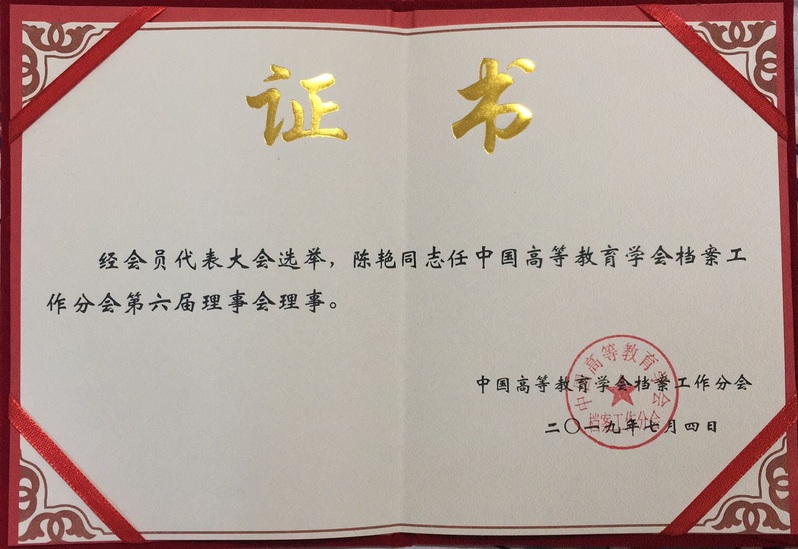 证书
经会员代表大会选举，陈艳同志任中国高等教育学会档案工
作分会第六届理事会理事。
中国高等教育学会档案工作分会
二〇一九年七月四日
中国高等教育学会
档案工作分会